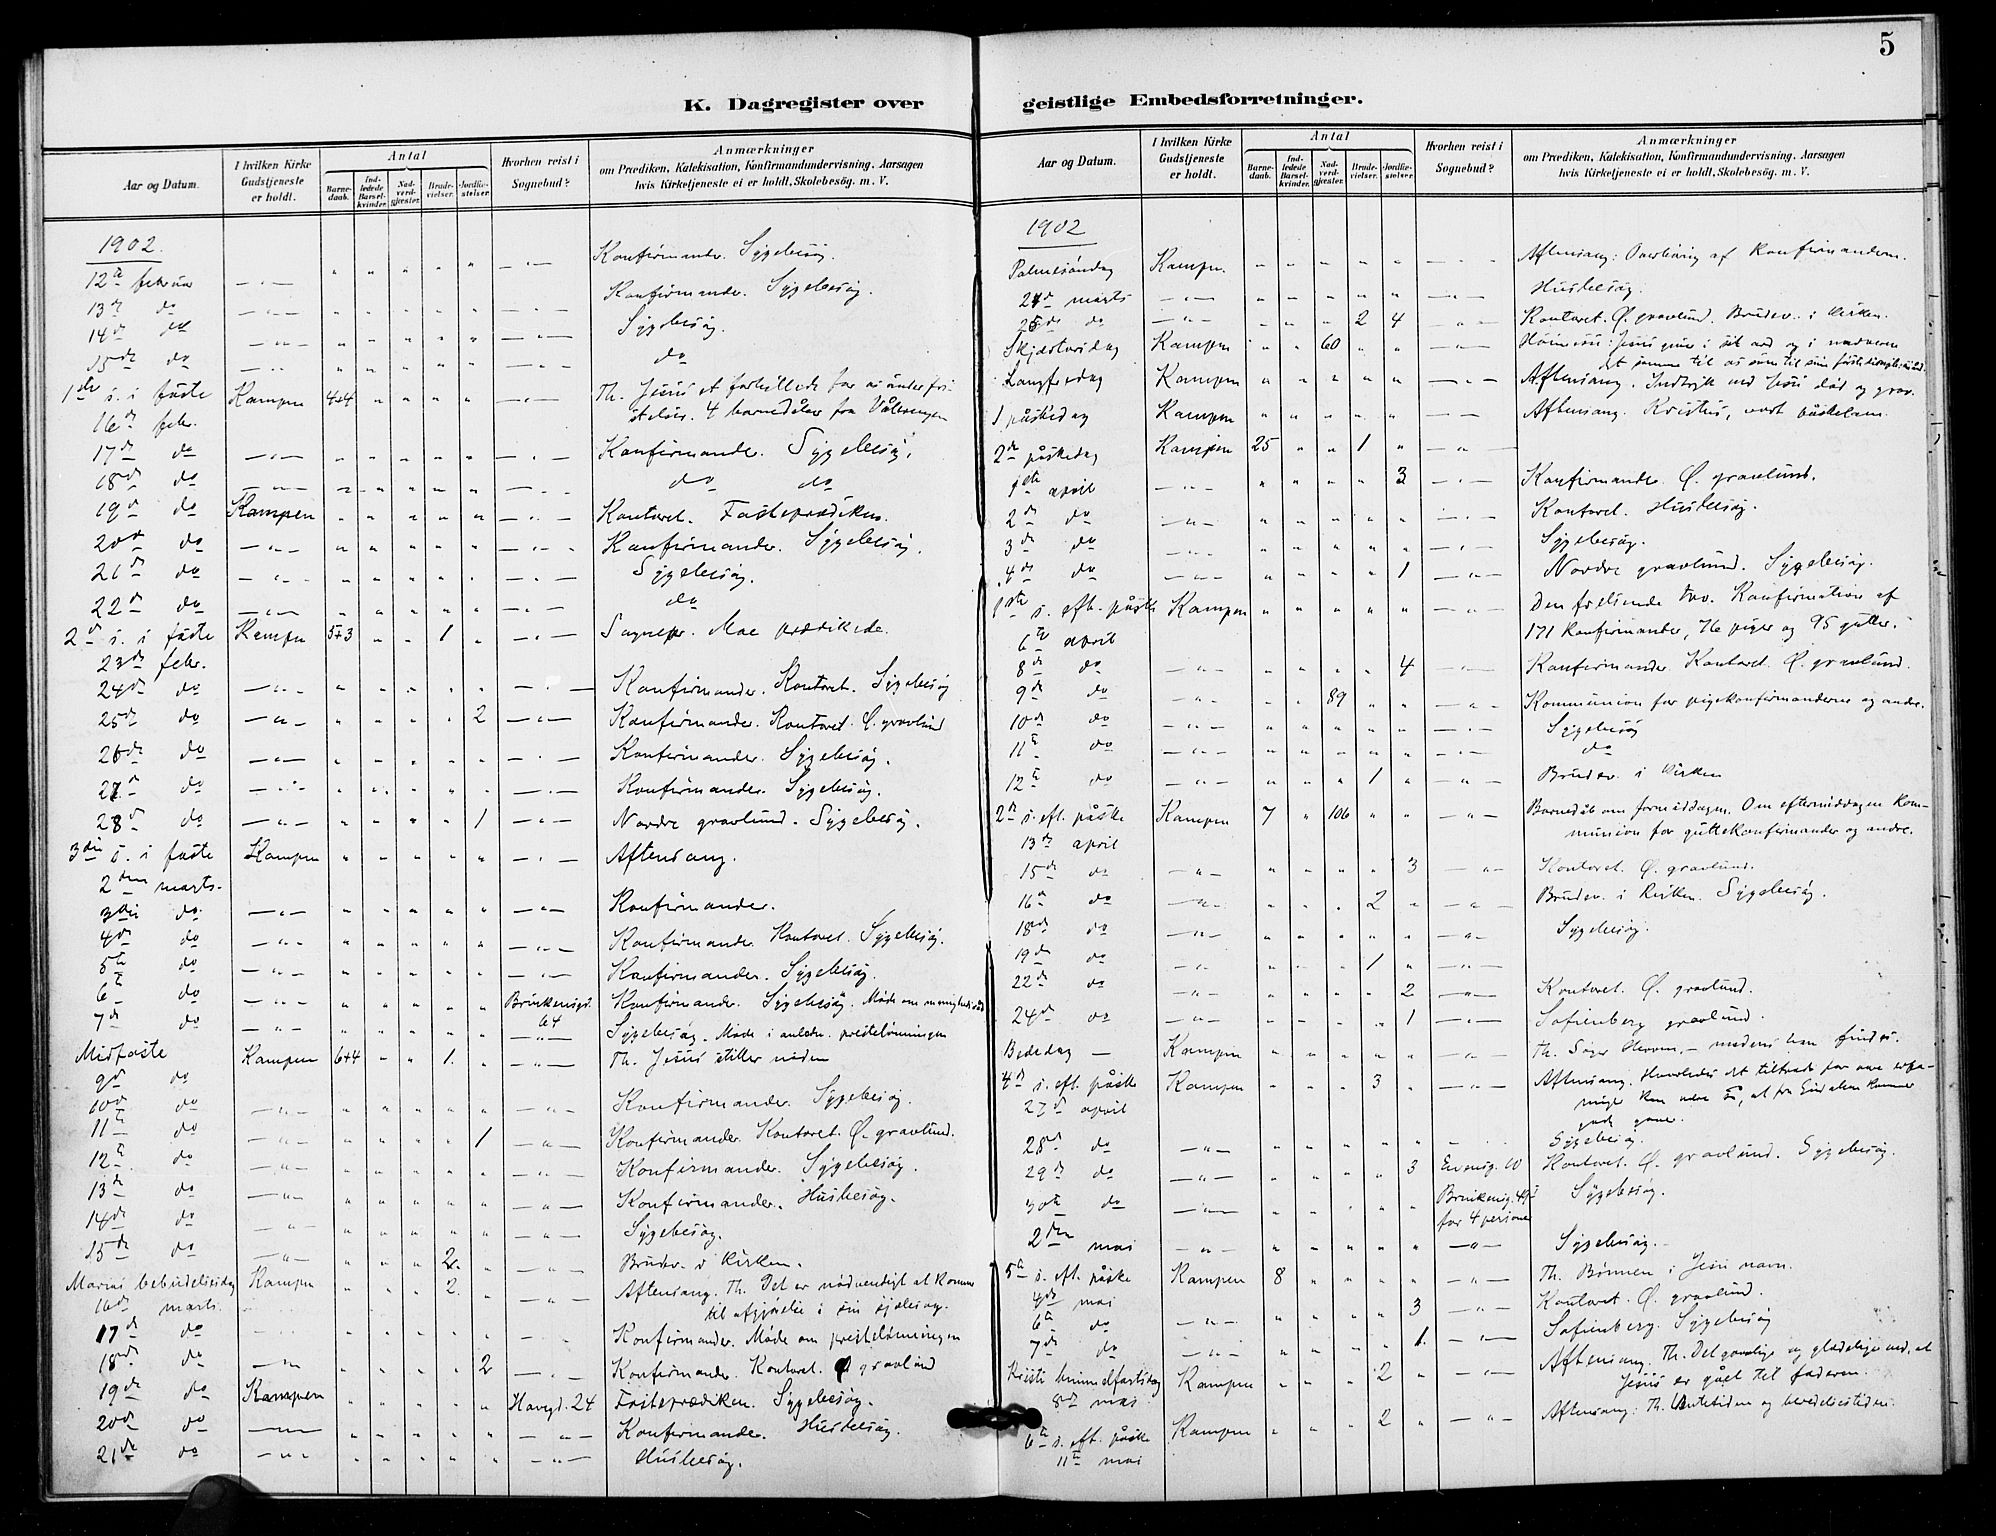 5
K. Dagregister over geistlige Embedsforretninger.
Aar og Datum.
I hvilken Kirke Gudstjeneste er holdt.
Antal
Barnedaab.
Indledede Barselkvinder.
Nadverdgjæster.
Brudevielser.
Jordfæstelser.
Hvorhen reist i Sognebud?
Anmærkninger
om Prædiken, Katekisation, Konfirmandundervisning, Aarsagen
hvis Kirketjeneste ei er holdt, Skolebesøg. m. V.
1902.
12te februar Konfirmander. Sygebesøg.
13de do Konfirmander. Sygebesøg.
14de do Sygebesøg.
15de do do
1ste s. i faste Kampen 4+4 Th. Jesus et forbillede for os under fri
16de febr. stelser. 4 barnedåber fra Vålerengen
17de do Konfirmander. Sygebesøg.
18de do do do
19de do Kampen Kontoret. Fasteprædiken.
20de do Konfirmander. Sygebesøg.
21de do Sygebesøg.
22de do do
2de s. i faste Kampen 5+3 1 Sognepr. Moe prædikede.
23de febr.
24de do Konfirmander. Kontoret. Sygebesøg
25de do 2 Konfirmander. Kontoret. Ø. gravlund
26de do Konfirmander. Sygebesøg.
27de do Konfirmander. Sygebesøg.
28de do 1 Nordre gravlund. Sygebesøg.
3die s. i faste Kampen Aftensang.
2den marts.
3die do Konfirmander.
4de do Konfirmander. Kontoret. Sygebesøg.
5te do Konfirmander. Sygebesøg.
6te do Brinkensgd. 64 Konfirmander. Sygebesøg. Møde om menighedsråd
7de do Sygebesøg. Møde i anledn. presteløninngen
Midfaste Kampen 6+4 1 Th. Jesus stiller nøden
9de do
10de do Konfirmander. Sygebesøg.
11te do 1 Konfirmander. Kontoret. Ø. gravlund.
12te do Konfirmander. Sygebesøg.
13de do Konfirmander. Husbesøg.
14de do Sygebesøg.
15de do 2 Brudev. i Kirken.
Mariæ bebudelsesdag Kampen 2 Aftensang. Th. Det er nødvendigt at komme
16de marts. til afgjørelse i sin sjælesag.
17de do Konfirmander. Møde om presteløninngen
18de do 2 Konfirmander. Kontoret. Ø gravlund
19de do Kampen Havegd. 24 Fasteprædiken. Sygebesøg.
20de do Konfirmander. Husbesøg.
21de do Husbesøg.
Aar og Datum.
I hvilken Kirke Gudstjeneste er holdt.
Antal
Barnedaab.
Indledede Barselkvinder.
Nadverdgjæster.
Brudevielser.
Jordfæstelser.
Hvorhen reist i Sognebud?
Anmærkninger
om Prædiken, Katekisation, Konfirmandundervisning, Aarsagen
hvis Kirketjeneste ei er holdt, Skolebesøg. m. V.
1902
Palmesøndag Kampen Aftensang: Overhøring af konfirmanderne.
24de marts Husbesøg.
25de do 2 4 Kontoret. Ø. gravlund. Brudev. i kirken.
Skjærtorsdag Kampen 60 Høimesse: Jesus giver i sit ord og i nadveren
det samme til os som til sin første discipelskare
Langfredag Kampen Aftensang. Indtryk ved Jesu død og grav.
1 påskedag Kampen Aftensang. Kristus, vort påskelam.
2de påskedag Kampen 25 1
1ste april 3 Konfirmander. Ø. gravlund.
2de do Kontoret. Husbesøg.
3de do Sygebesøg.
4de do 1 Nordre gravlund. Sygebesøg.
1ste s. eft. påske Kampen Den frelsende tro. Konfirmation af
6te april 171 konfirmander, 76 piger og 95 gutter.
8de do 4 Konfirmander. Kontoret. Ø. gravlund.
9de do 89 Kommunion for pigekonfirmanderne og andre.
10de do Sygebesøg
11te do do
12te do 1 Brudev. i kirken
2den s. eft. påske Kampen 7 106 Barnedåb om formiddagen. Om eftermiddagen kom-
13de april munion for guttekonfirmander og andre.
15de do 3 Kontoret. Ø. gravlund.
16de do 2 Brudev. i Kirken. Sygebesøg.
18de do Sygebesøg.
19de do 1
22de do 2 Kontoret. Ø. gravlund.
24de do 1 Sofienberg gravlund.
Bededag Kampen Th. Søger Herren, – medens han findes.
4de s. eft. påske Kampen 3 Aftensang. Hvorledes det tiltrods for
27de april kan være så, at fra Gud alene kommer
gode gaver.
28de do Sygebesøg.
29de do 3 10 Kontoret. Ø. gravlund. Sygebesøg.
30te do Brinkensg. 49 Sygebesøg.
for 4 personer
2den mai Sygebesøg.
5te s. eft. påske Kampen 8 Th. Bønnen i Jesu navn.
4de mai
6te do 3 Kontoret. Ø. gravlund.
7de do 1 Sofienberg. Sygebesøg
Kristi himmelfartsdag Kampen 2 Aftensang. Th. Det gavnlige og glædelige ved, at
8de mai Jesus er gået til faderen.
6te s. eft. påske Kampen 2 Aftensang: Th. Ventetiden og beredelsestiden.
11te mai